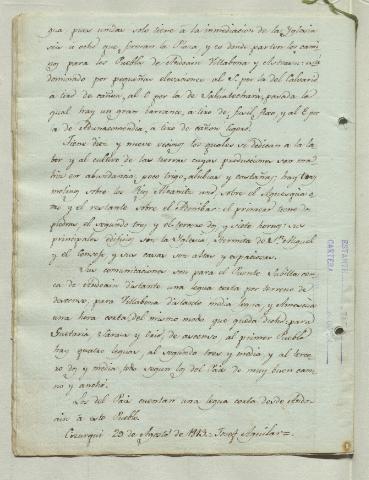 gua, pues unidas solo tiene à la inmediacion de la Yglesia
seis u ocho que forman la Plaza, y es donde parten los cami
nos para los Pueblos de Andoain Villabona y Asteasu: està
dominado por pequeñas elevaciones al S. por la del Calvario
à tiro de cañon, al O por la de Saliatechara, pasada la
qual hay un gran barranco, a tiro de fusil, y al E por
la de a tiro de cañon ligero.
Tiene diez y nueve vecinos los quales se dedican a la la
bor y al cultivo de las tierras cuyas producciones son ma
iz en abundancia, poco trigo, alubias y castañas; hay tres
molinos sobre los Rios uno, sobre el
y el restante sobre el el primero tiene dos
piedras, el segundo tres y el tercero dos y siete hornos: sus
principales edificios son la Yglesia, Hermita de S.n Miguel
y el Consejo, y sus casas son altas y espaciosas.
Sus comunicaciones son para el Puente Sabilla cer
ca de Andoain distante una legua corta por terreno de
descenso, para Villabona distante media legua, y Asteasu
una hora corta, del mismo modo que queda dicho: para
Guetaria Zarauz y Orio, de ascenso, al primer Pueblo
hay quatro leguas, al segundo tres y media, y al terce
ro dos y media, todo segun ley del Pais de muy buen cami
no y ancho.
Los del Pais cuentan una legua corta desde Ando
ain à este Pueblo.
Cizurquil 29 de Agosto de 1813 = Josef Aguilar =
CARTERA